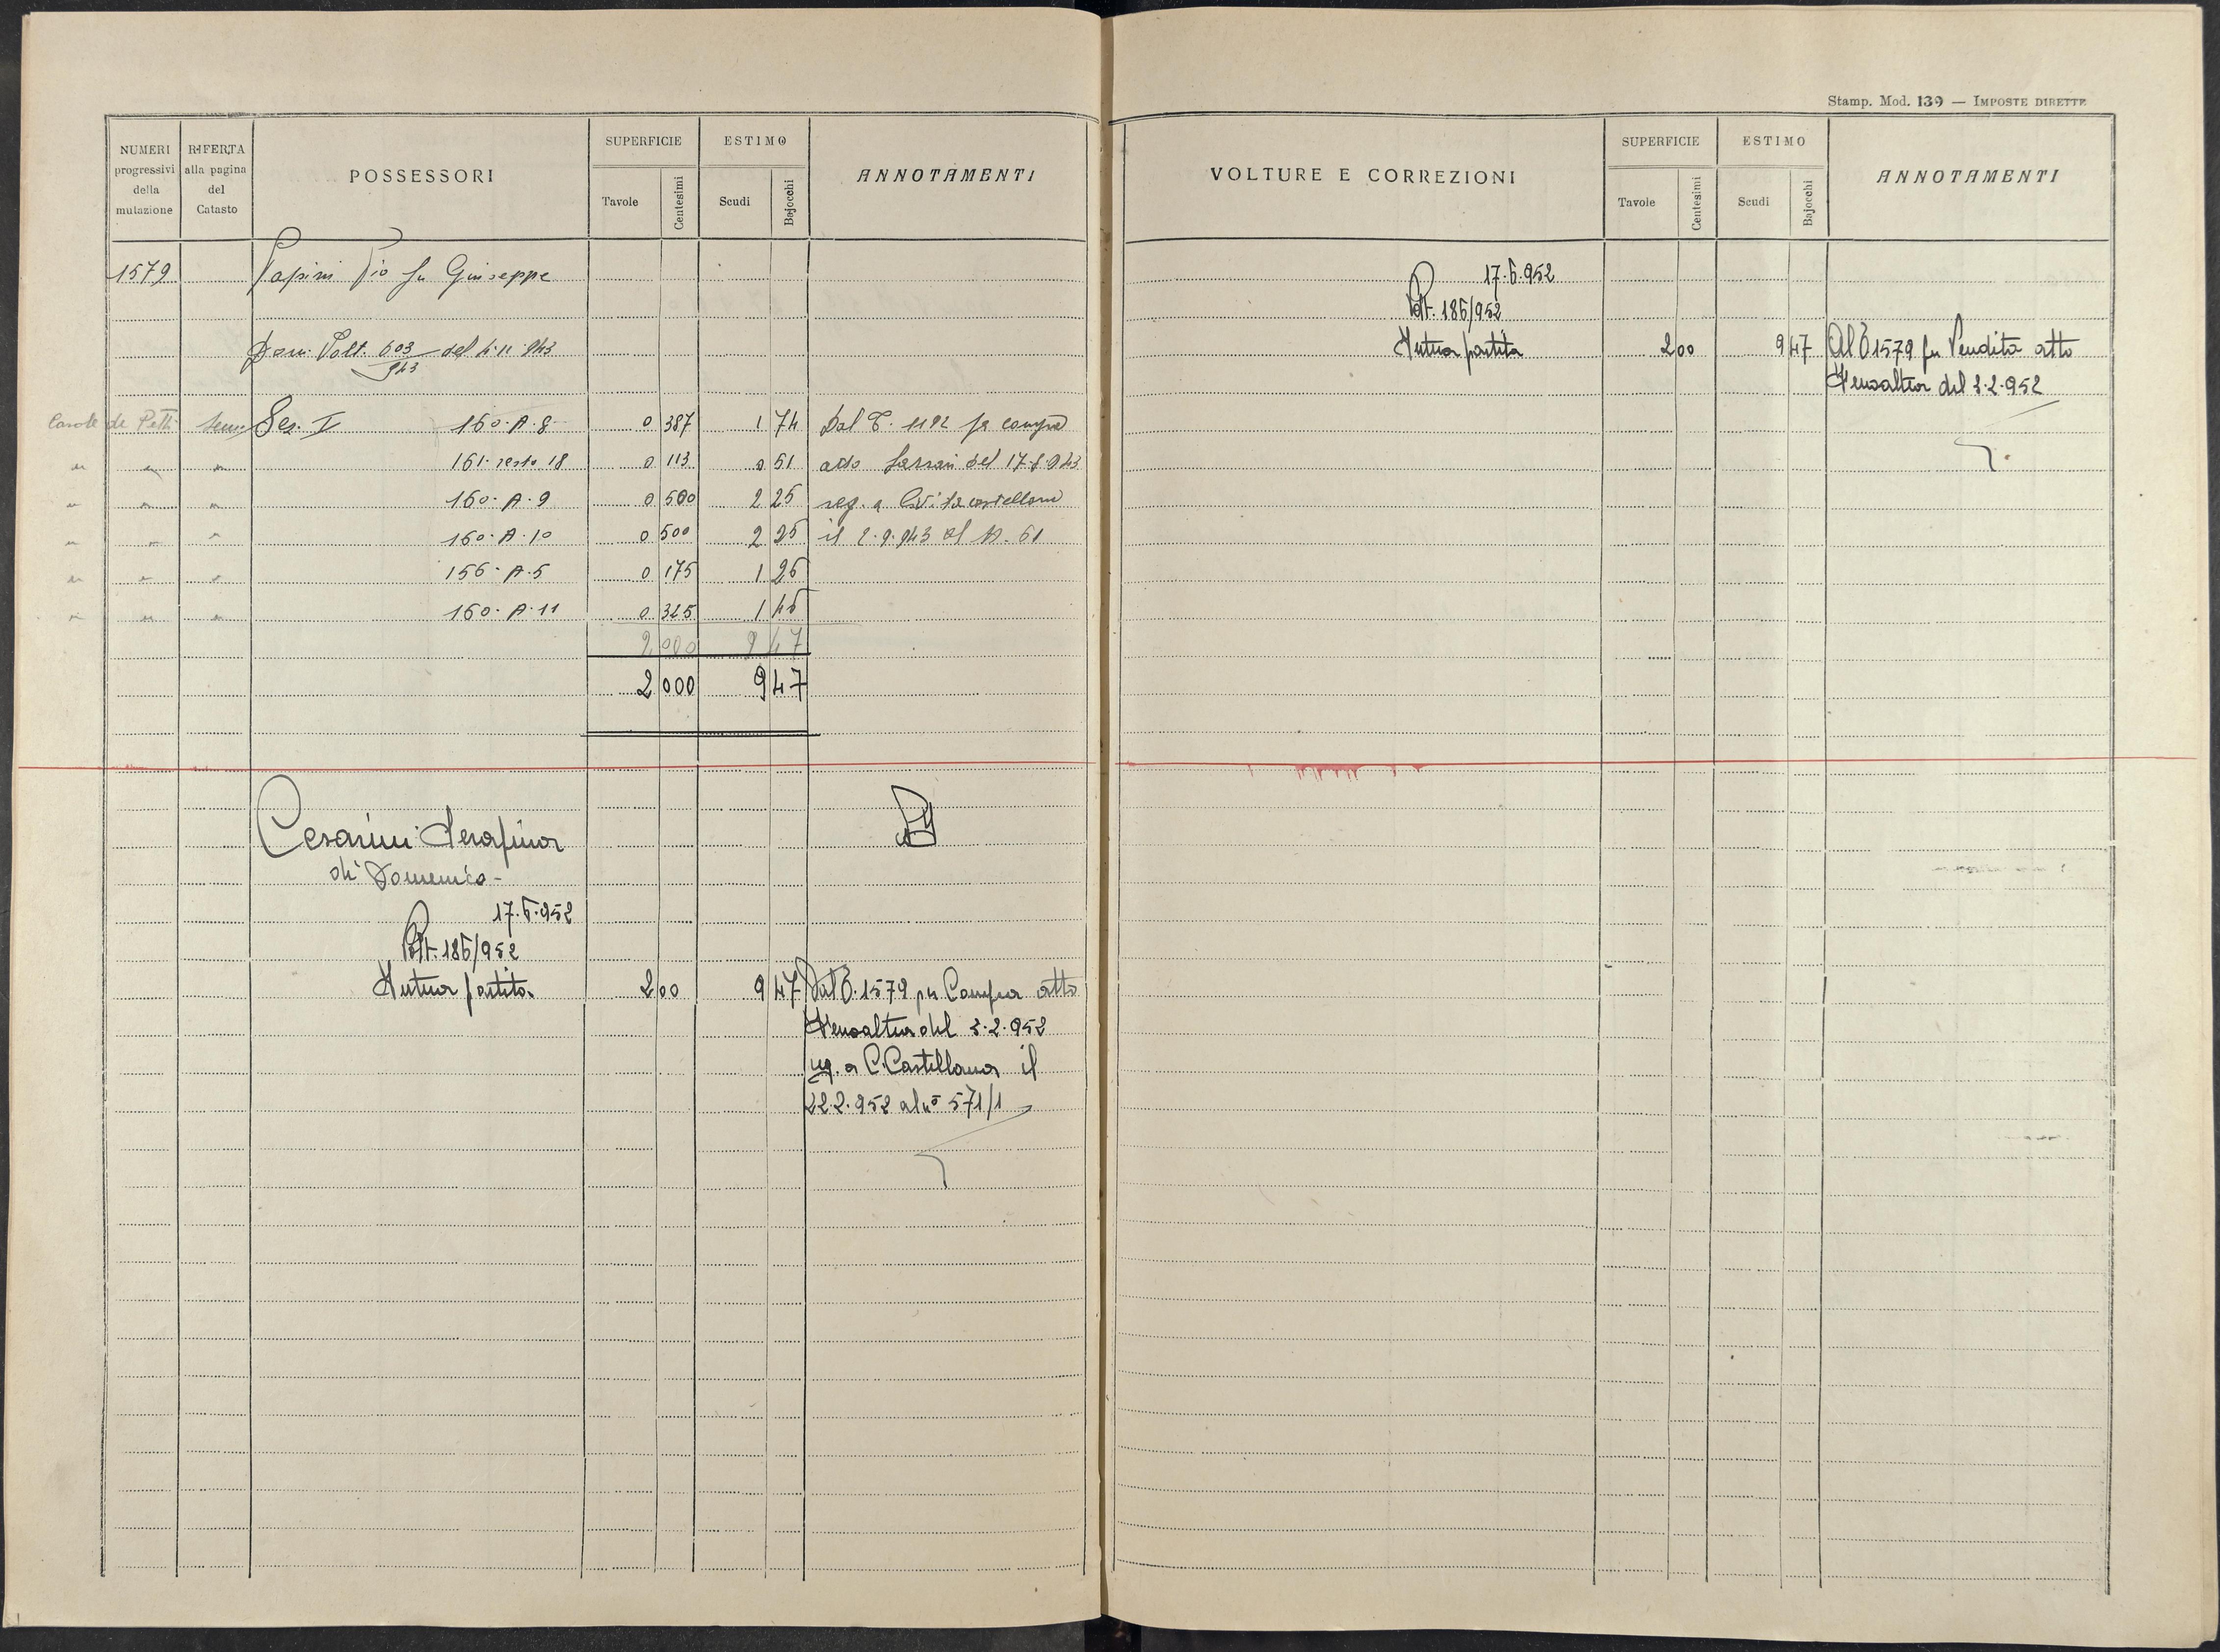 Stamp. Mod. 139 — IMPOSTE DIRETTE
NUMERI progressivi della mutazione
RIFERTA alla pagina del Catasto
POSSESSORI
SUPERFICIE
Tavole
Centesimi
ESTIMO
Scudi
Bajocchi
ANNOTAMENTI
1579 Papini Pio fu Giuseppe
Volt. 603/943 del 4.11.943
Sez. I 160.A.8 0 387 1 74 Dal T. 1192 compra
161. resto 18 0 113 0 51 atto del 17.8.943
160.A.9 0 500 2 25 reg. a Civitacastellana
160.A.10 0 500 2 25 il 2.9.943 al N. 61
156.A.5 0 175 1 26
160.A.11 0 325 1 46
2 000 9 47
2 000 9 47
Cesarini Serafina
di Domenico -
17.5.952
Volt. 185/952
Intera partita 2 00 9 47 Dal T. 1579 per Compra atto
del 3.2.952
reg. a C. Castellana il
22.2.952 al n° 571/1
VOLTURE E CORREZIONI
SUPERFICIE
Tavole
Centesimi
ESTIMO
Scudi
Bajocchi
ANNOTAMENTI
17.5.952
Volt. 185/952
Intera partita 2 00 9 47 Al T 1579 per Vendita atto
del 3.2.952